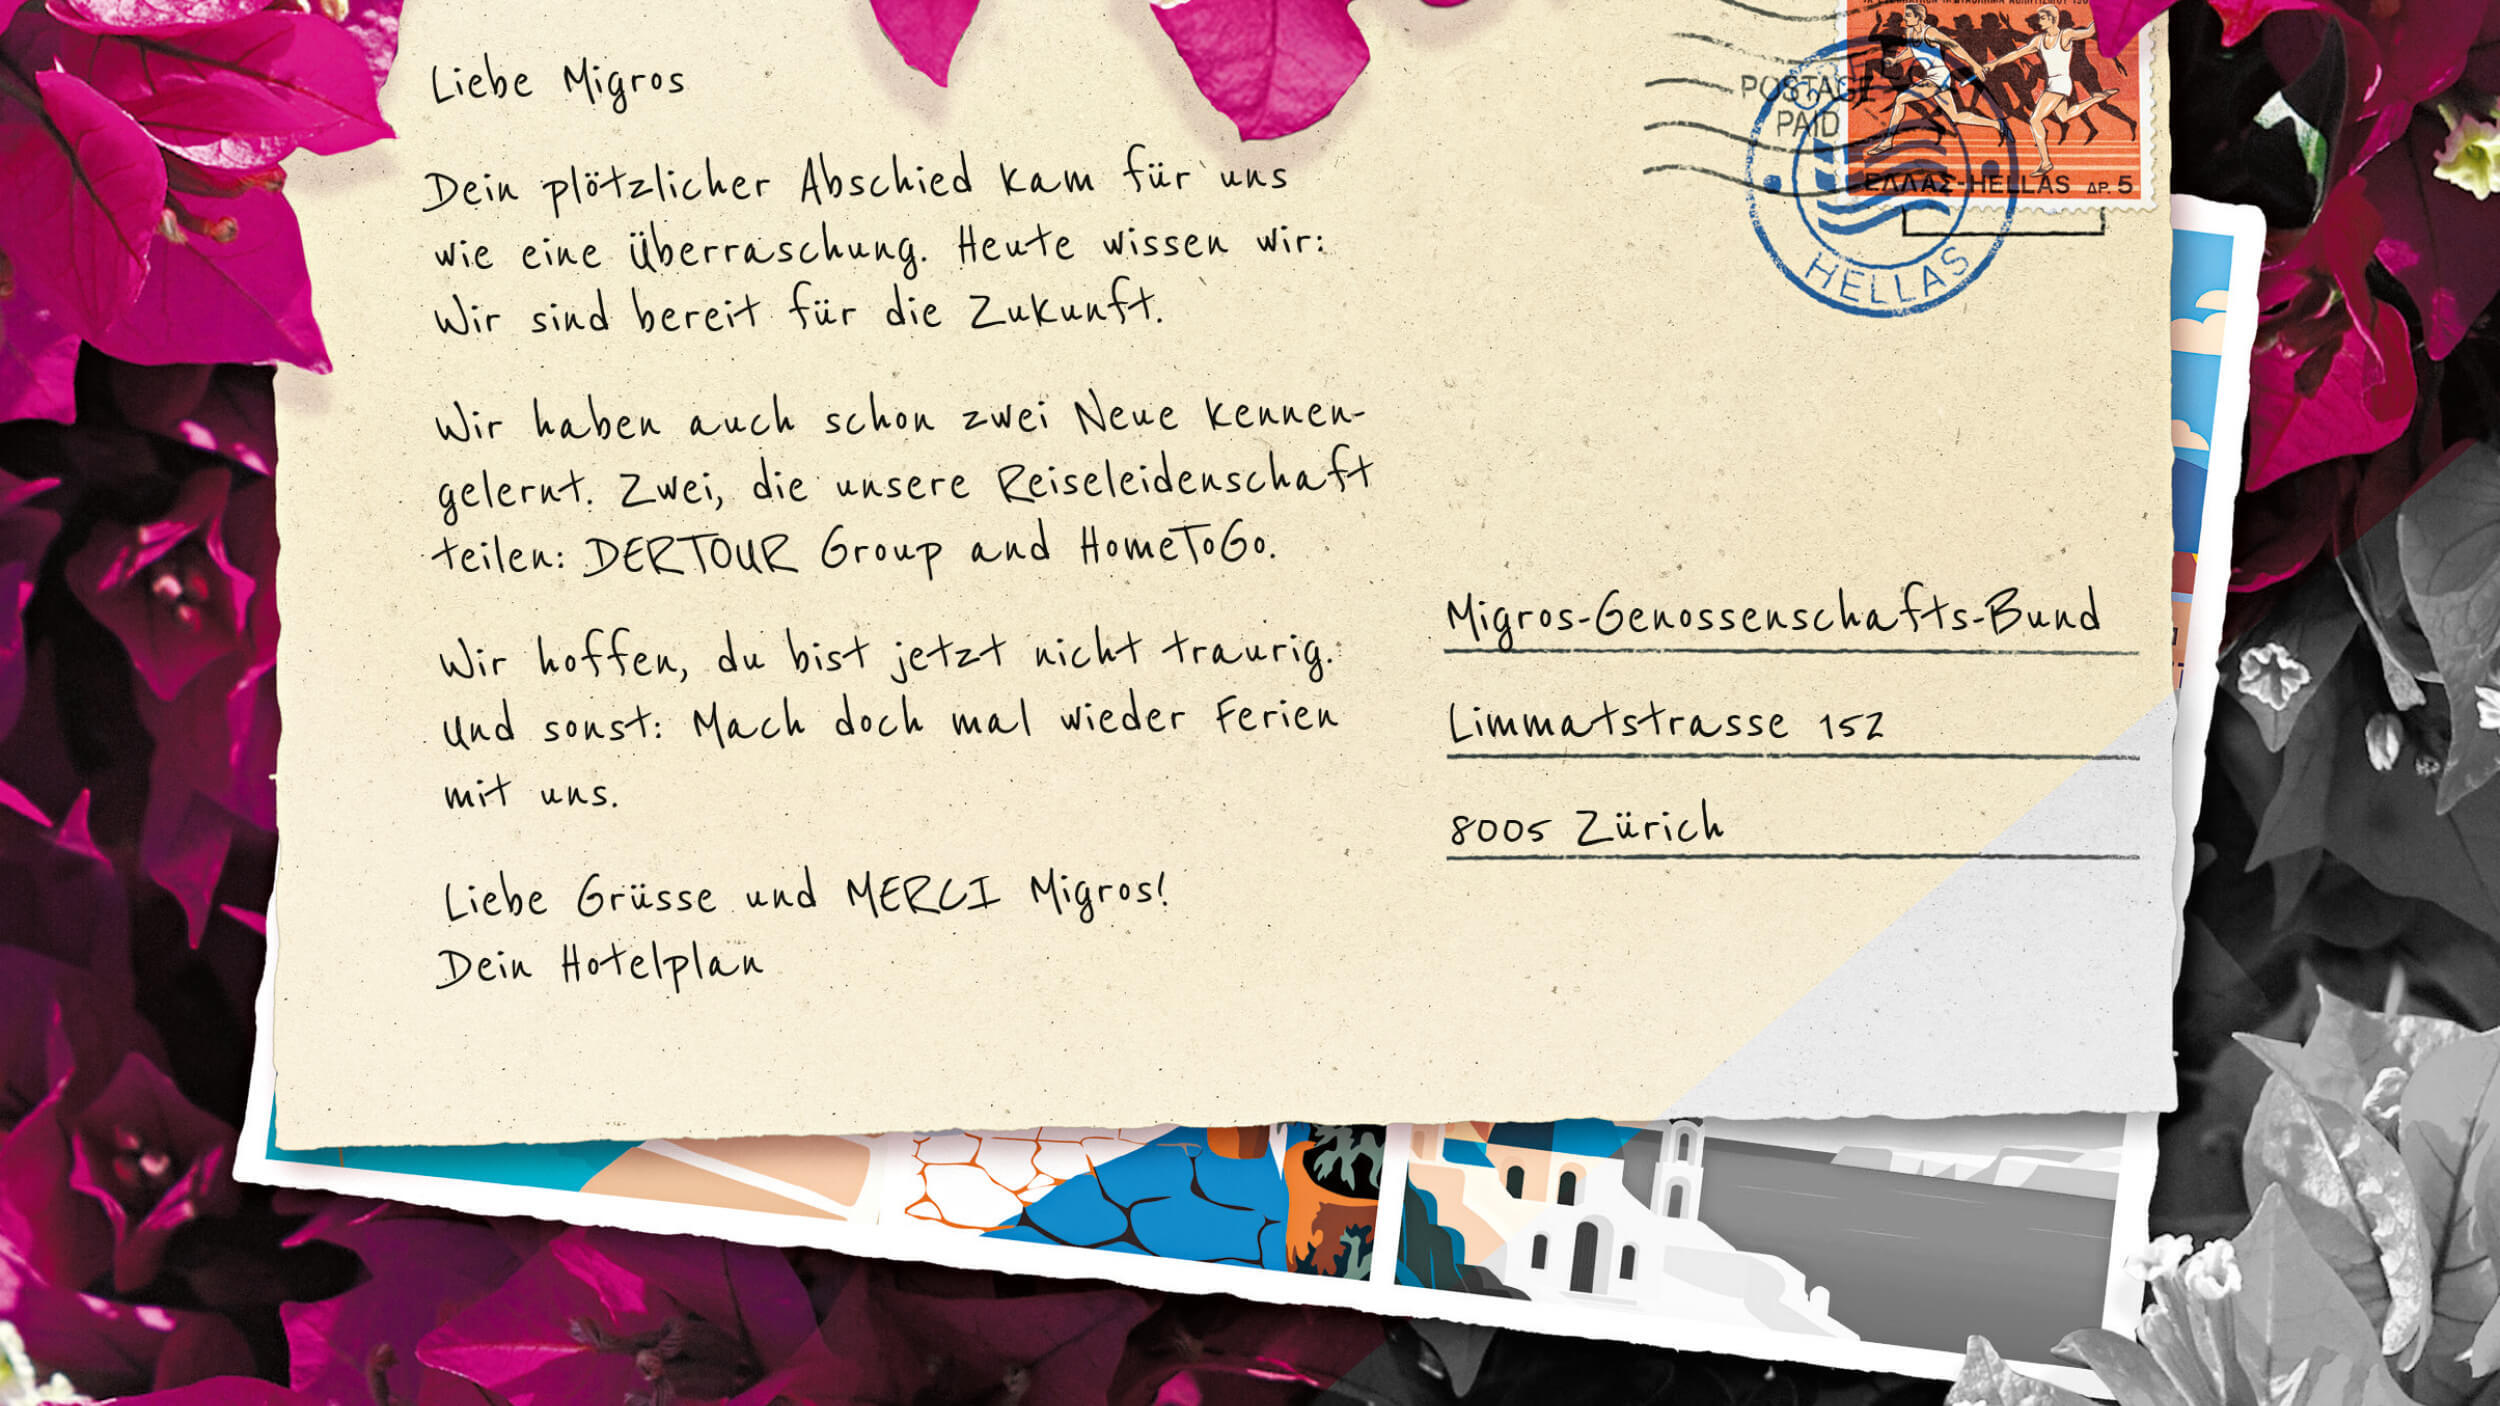 Liebe Migros
Dein plötzlicher Abschied kam für uns
wie eine Überraschung. Heute wissen wir:
Wir sind bereit für die Zukunft.
Wir haben auch schon zwei Neue kennen-
gelernt. Zwei, die unsere Reiseleidenschaft
teilen: DERTOUR Group and HomeToGo.
Wir hoffen, du bist jetzt nicht traurig.
Und sonst: Mach doch mal wieder Ferien
mit uns.
Liebe Grüsse und MERCI Migros!
Dein Hotelplan
POSTAGE
PAID
ΕΛΛΑΣ-HELLAS ΔΡ. 5
HELLAS
Migros-Genossenschafts-Bund
Limmatstrasse 152
8005 Zürich